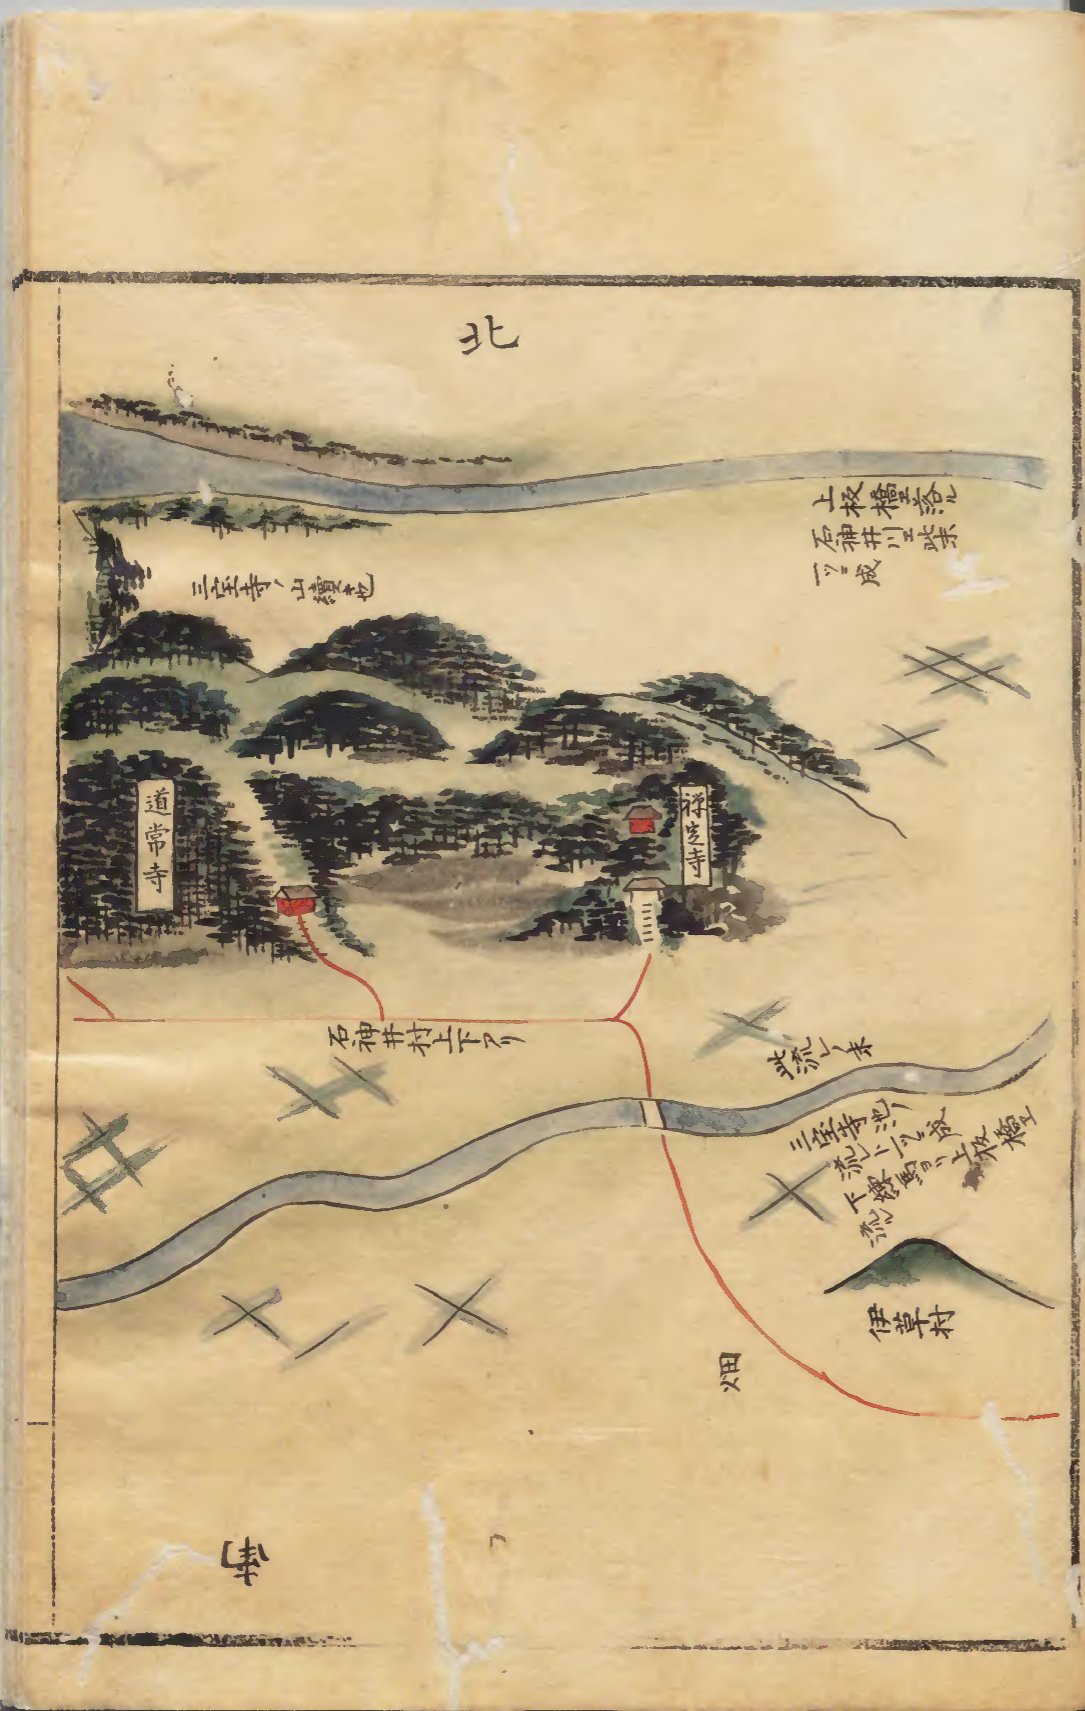 北
上板橋エ落ル
石神井川エ此末
一ツニ成
三宝寺ノ山續き也
道常寺
禅定寺
石神井村上下アリ
此流ノ末
三宝寺池ノ
流レト一ツニ成
下練馬ヨリ上板橋エ
流ル
伊草村
畑
南